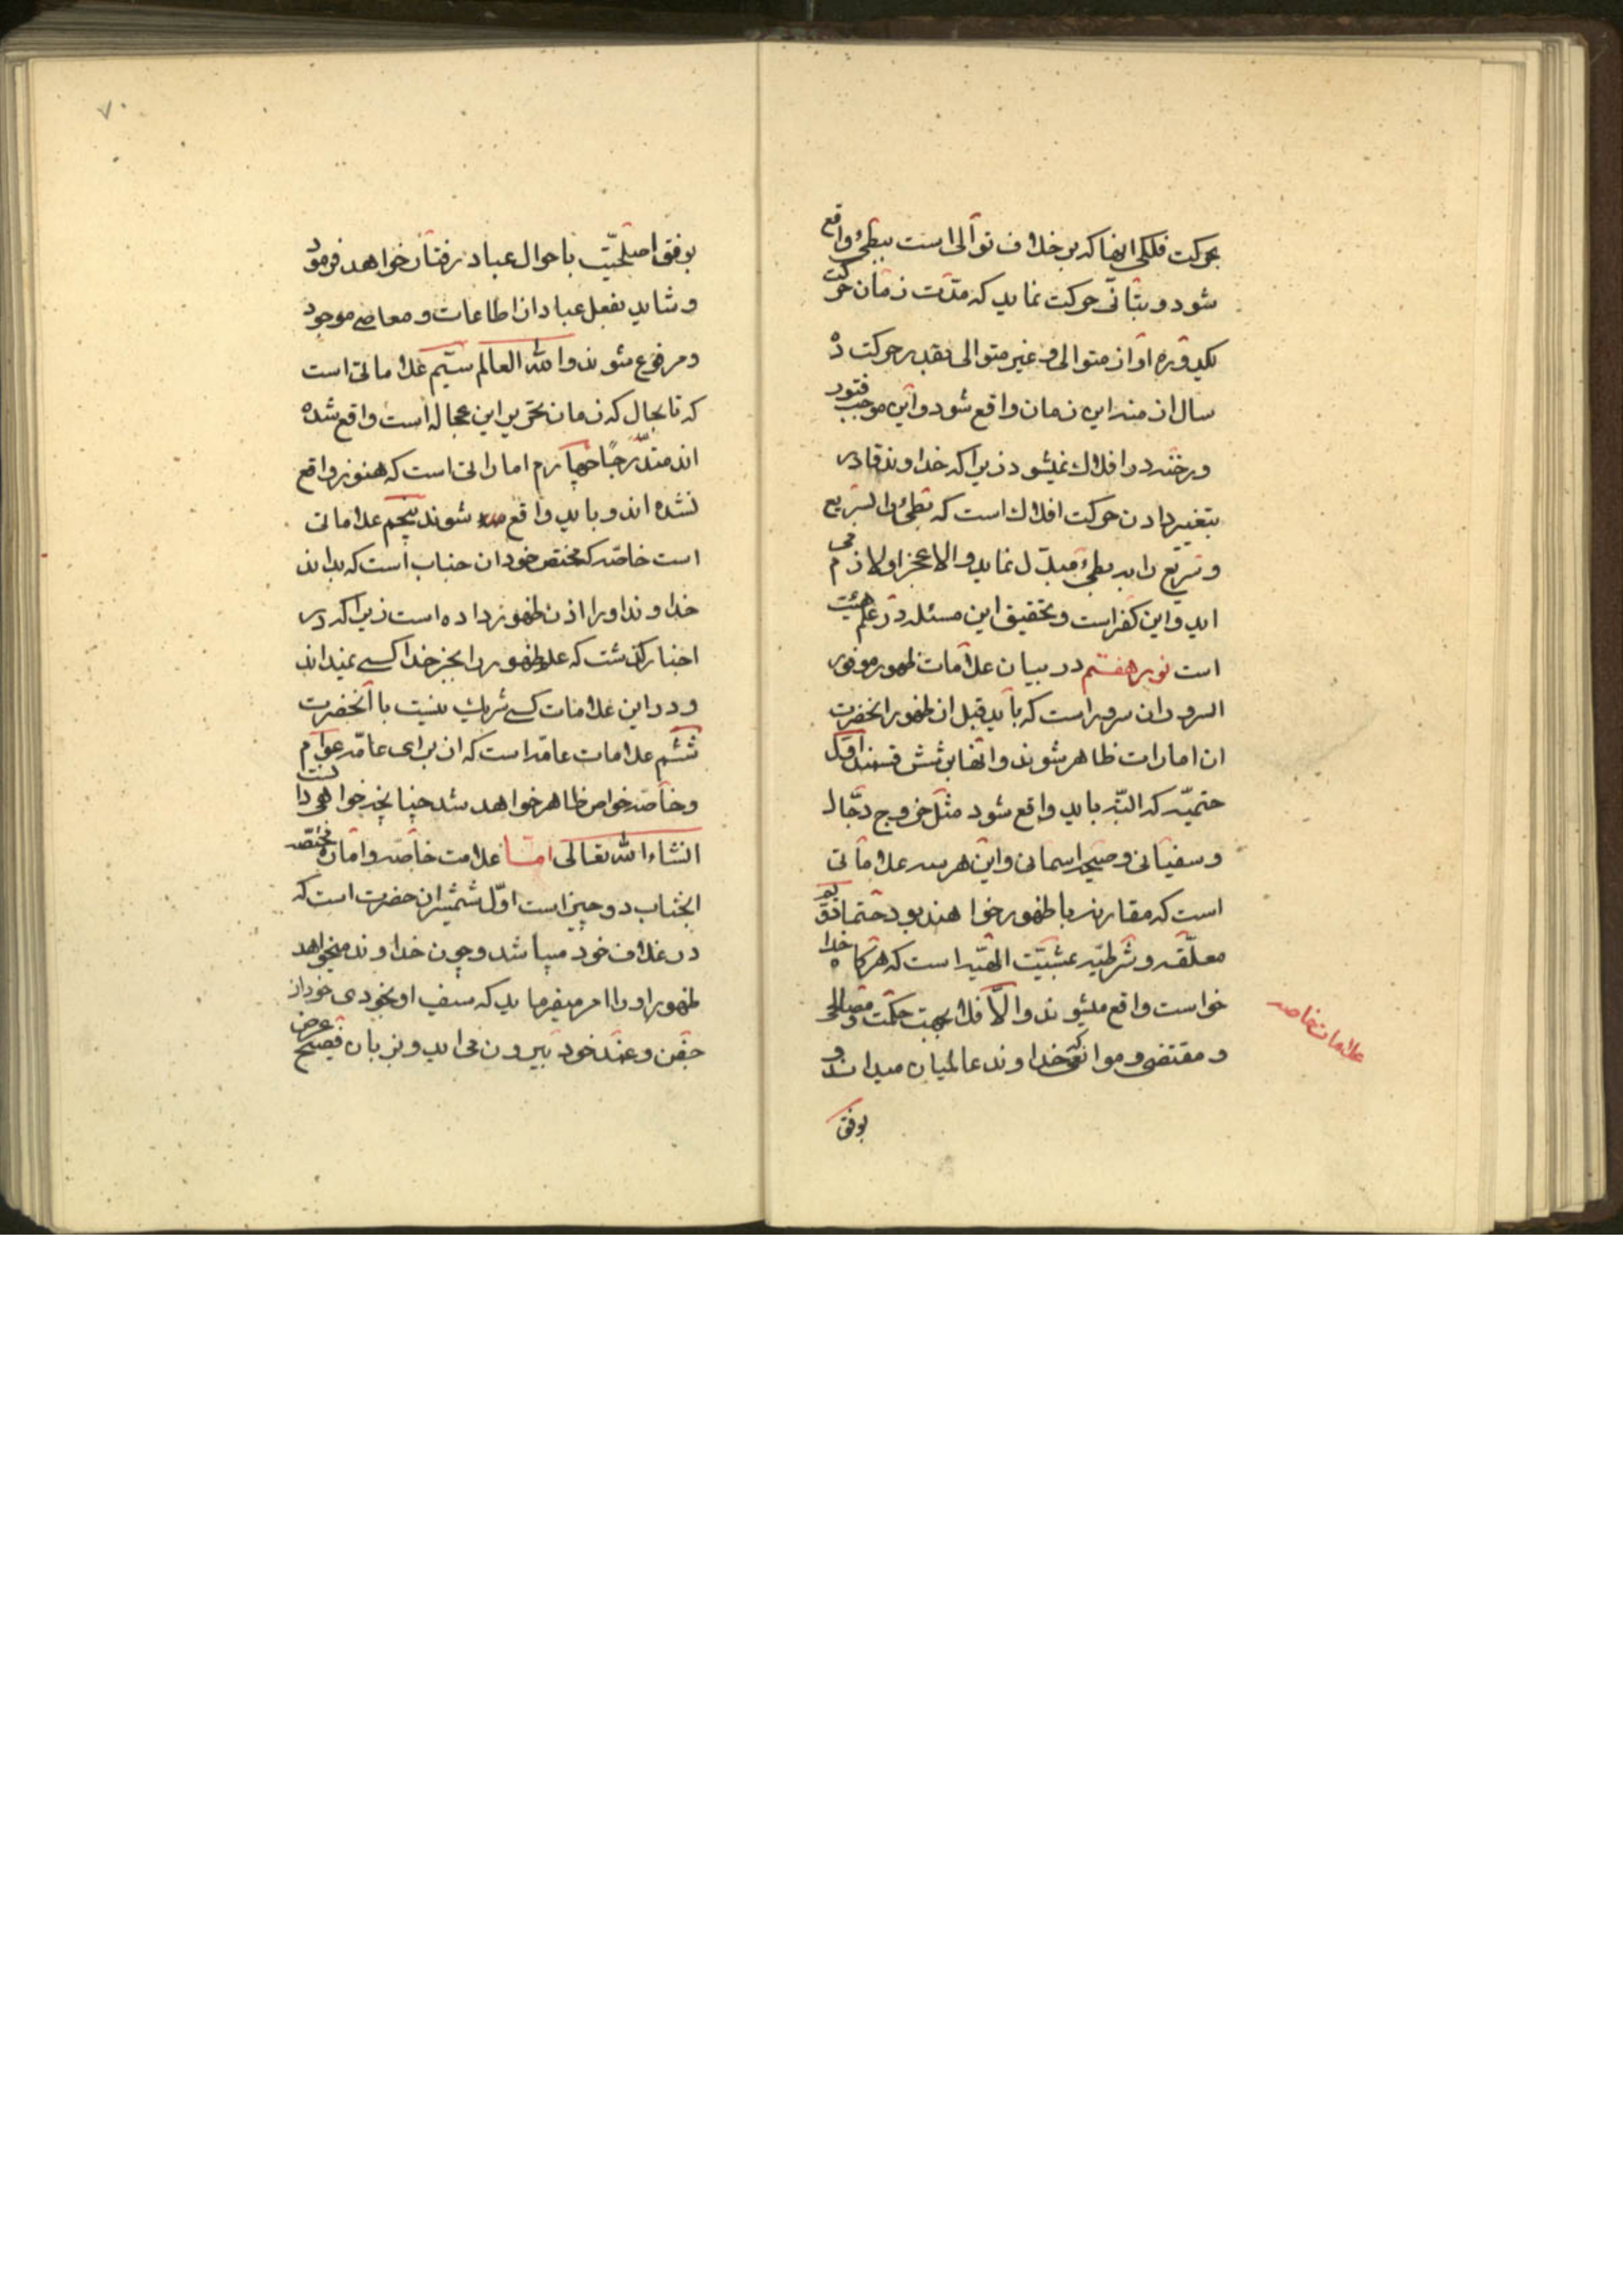 بحرکت فلکی انها که بر خلاف توالی است ببطیؤ واقع
شود و بتانّی حرکت نماید که مدّت زمان حرکت
یکدوره او از متوالی و غیر متوالی بقدر حرکت ده
سال از منه این زمان واقع شود و این موجب فتور
و رخنه در افلاک نمیشود زیرا که خداوند قادر
بتغییر دادن حرکت افلاک است که بطیؤ را بسریع
و سریع را به بطیؤ مبدّل نماید و الا عجز او لازم می
اید و این کفر است و تحقیق این مسئله در علم هیئت
است نور هفتم در بیان علامات ظهور موفور
السرور ان سرور است که باید قبل از ظهور انحضرت
ان امارات ظاهر شوند و انها بر شش قسمند اوّل
حتمیّه که البتّه باید واقع شود مثل خروج دجّال
و سفیانی و صیحه اسمانی و این هر سه علاماتی
است که مقارنه با ظهور خواهند بود حتما دویّم
معلّقه و شرطیّه بمشیّت الهیّه است که هرگاه خدا
خواست واقع میشوند و الّا فلا بجهت حکمت و مصالحی
و مقتضی و موانعی که خداوند عالمیان میداند و
بوفق
علامات خاصه
۷۰
بوفق اصلحیّت باحوال عباد رفتار خواهد فرمود
و شاید بفعل عباد از اطاعات و معاصی موجود
و مرفوع شوند و الله العالم سیّم علاماتی است
که تا بحال که زمان تحریر این عجاله است واقع شده
اند متدرّجًا چهارم اماراتی است که هنوز واقع
نشده اند و باید واقع شوند پنجم علاماتی
است خاصّه که مختص خود ان جناب است که بداند
خداوند او را اذن ظهور داده است زیرا که در
اخبار گذشت که علم ظهور را بجز خدا کسی نمیداند
و در این علامات کسی شریک نیست با انحضرت
ششم علامات عامّه است که ان برای عامّه عوام
و خاصّه خواص ظاهر خواهد شد چنانچه خواهی دانست
انشاء الله تعالی امّا علامت خاصّه و اماره مختصّه
انجناب دو چیز است اوّل شمشیر ان حضرت است که
در غلاف خود میباشد و چون خداوند میخواهد
ظهور او را امر میفرماید که سیف او بخودی خود از
جفن و غمد خود بیرون می اید و بزبان فصیح عرض